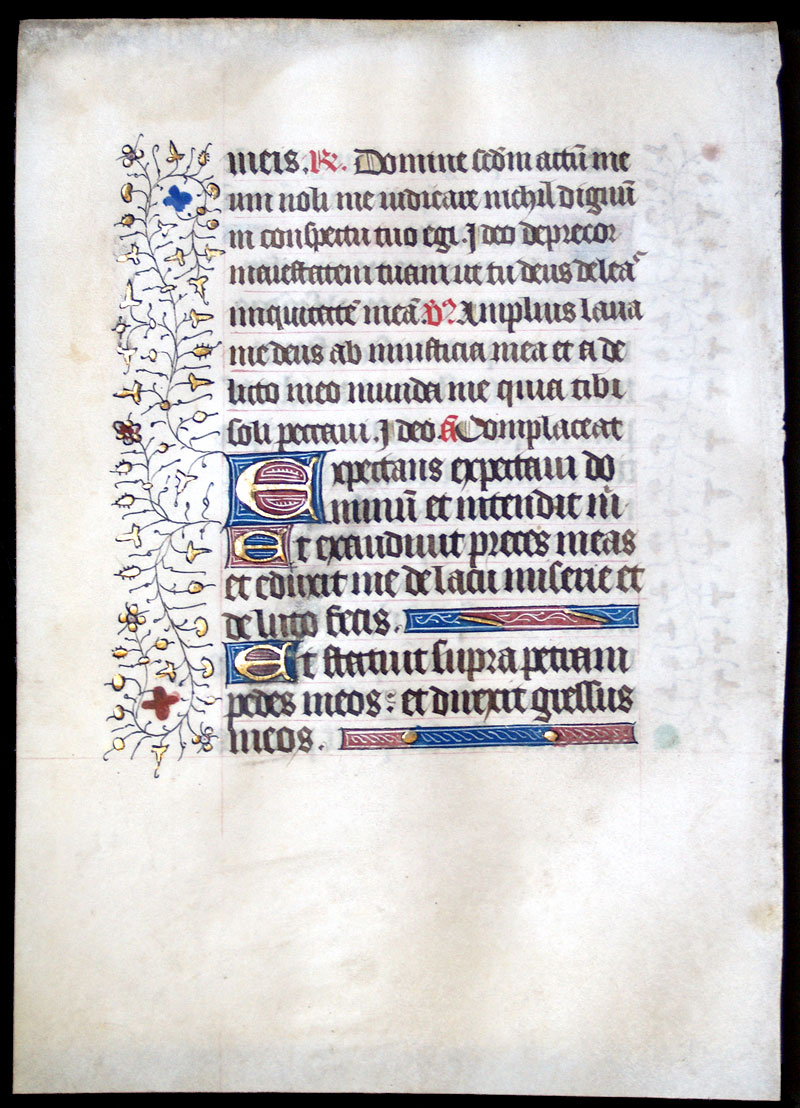 meis. R. Domine scdm actū me
um noli me iudicare nichil dignū
in conspectu tuo egi. Ideo deprecor
maiestatem tuam ut tu deus delea
iniquitatē meā. V. Amplius laua
me deus ab iniusticia mea et a de
licto meo munda me quia tibi
soli peccaui. Ideo a Complaceat
Expectans expectaui do
minū et intendit m
Et exaudiuit preces meas
et eduxit me de lacu miserie et
de luto fecis.
Et statuit supra petram
pedes meos: et direxit gressus
meos.